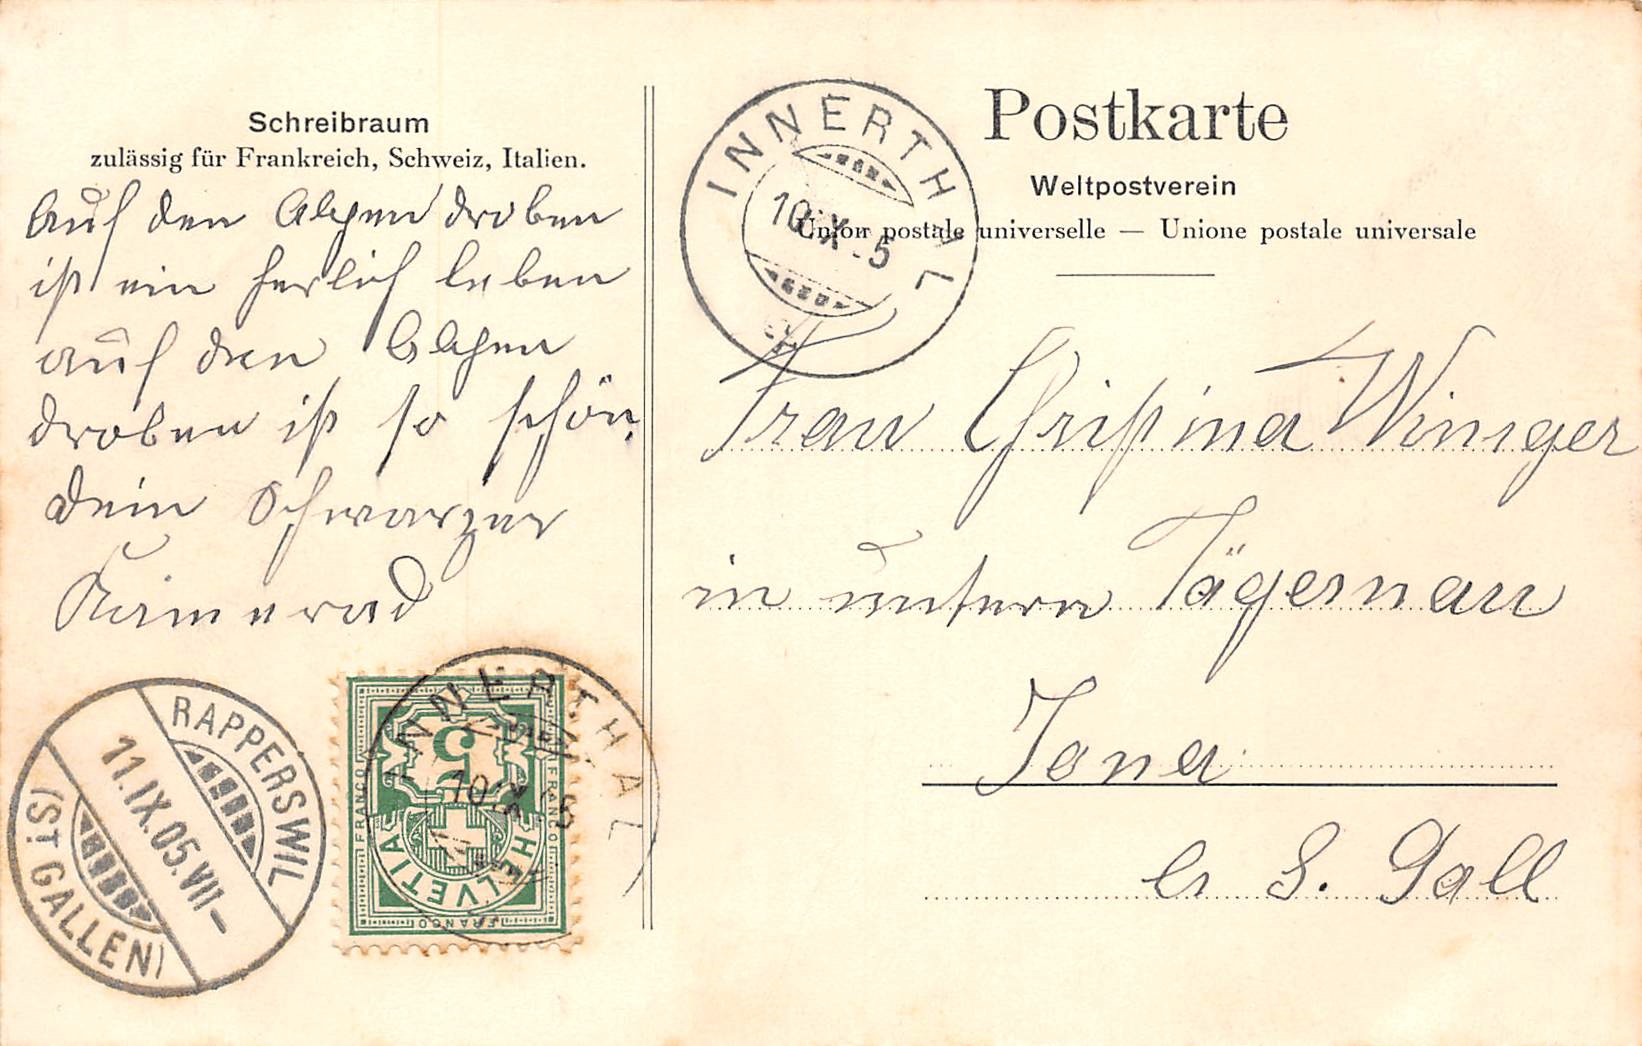 Schreibraum
zulässig für Frankreich, Schweiz, Italien.
Auf den Alpen droben
ist ein herlich leben
auf den Alpen
droben ist so schön,
dein Schwarzer
Kamerad
RAPPERSWIL
11.IX.05.VII-
(ST GALLEN)
FRANCO
FRANCO
FRANCO
5
HELVETIA
INNERTHAL
10
INNERTHAL
10.IX.05
Postkarte
Weltpostverein
Union postale universelle — Unione postale universale
Frau Christina Winiger
in untern Tägernau
Jona
Ct S. Gall